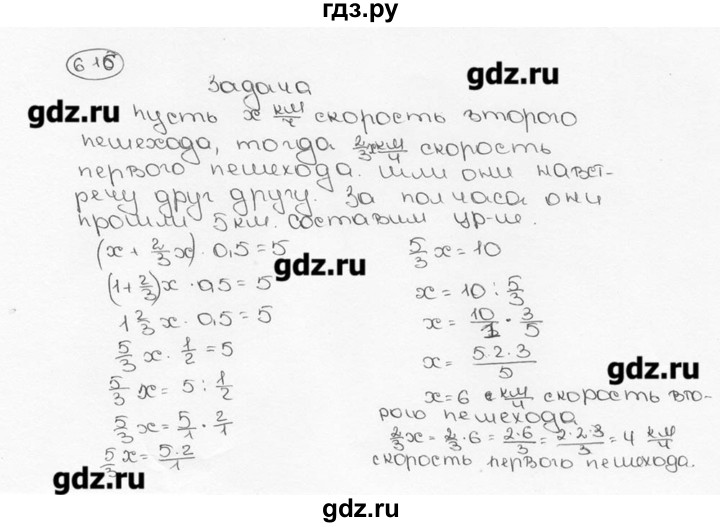 гдз.ру
616
gdz.ru
Задача
gdz.ru
Пусть x км/ч скорость второго
пешехода, тогда 2/3x км/ч скорость
первого пешехода. Шли они навст-
речу друг другу. За полчаса они
прошли 5 км. Составим ур-ие.
(x + 2/3 x) · 0,5 = 5
(1 + 2/3)x · 0,5 = 5
1 2/3 x · 0,5 = 5
5/3 x · 1/2 = 5
5/3 x = 5 : 1/2
5/3 x = 5/1 · 2/1
5/3 x = 5·2/1
gdz.ru
5/3 x = 10
x = 10 : 5/3
x = 10/1 · 3/5
x = 5·2·3/5
gdz.ru
x = 6 км/ч скорость вто-
рого пешехода
2/3 x = 2/3 · 6 = 2·6/3 = 2·2·3/3 = 4 км/ч
скорость первого пешехода.
gdz.ru
gdz.ru